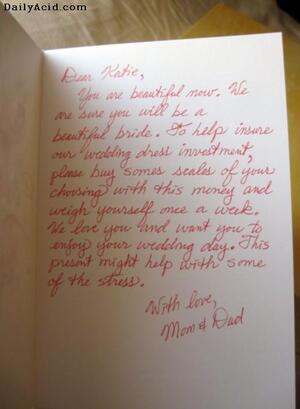 DailyAcid.com
Dear Katie,
You are beautiful now. We
are sure you will be a
beautiful bride. To help insure
our wedding dress investment,
please buy somes scales of your
choosing with this money and
weigh yourself once a week.
We love you and want you to
enjoy your wedding day. This
present might help with some
of the stress.
With love,
Mom & Dad